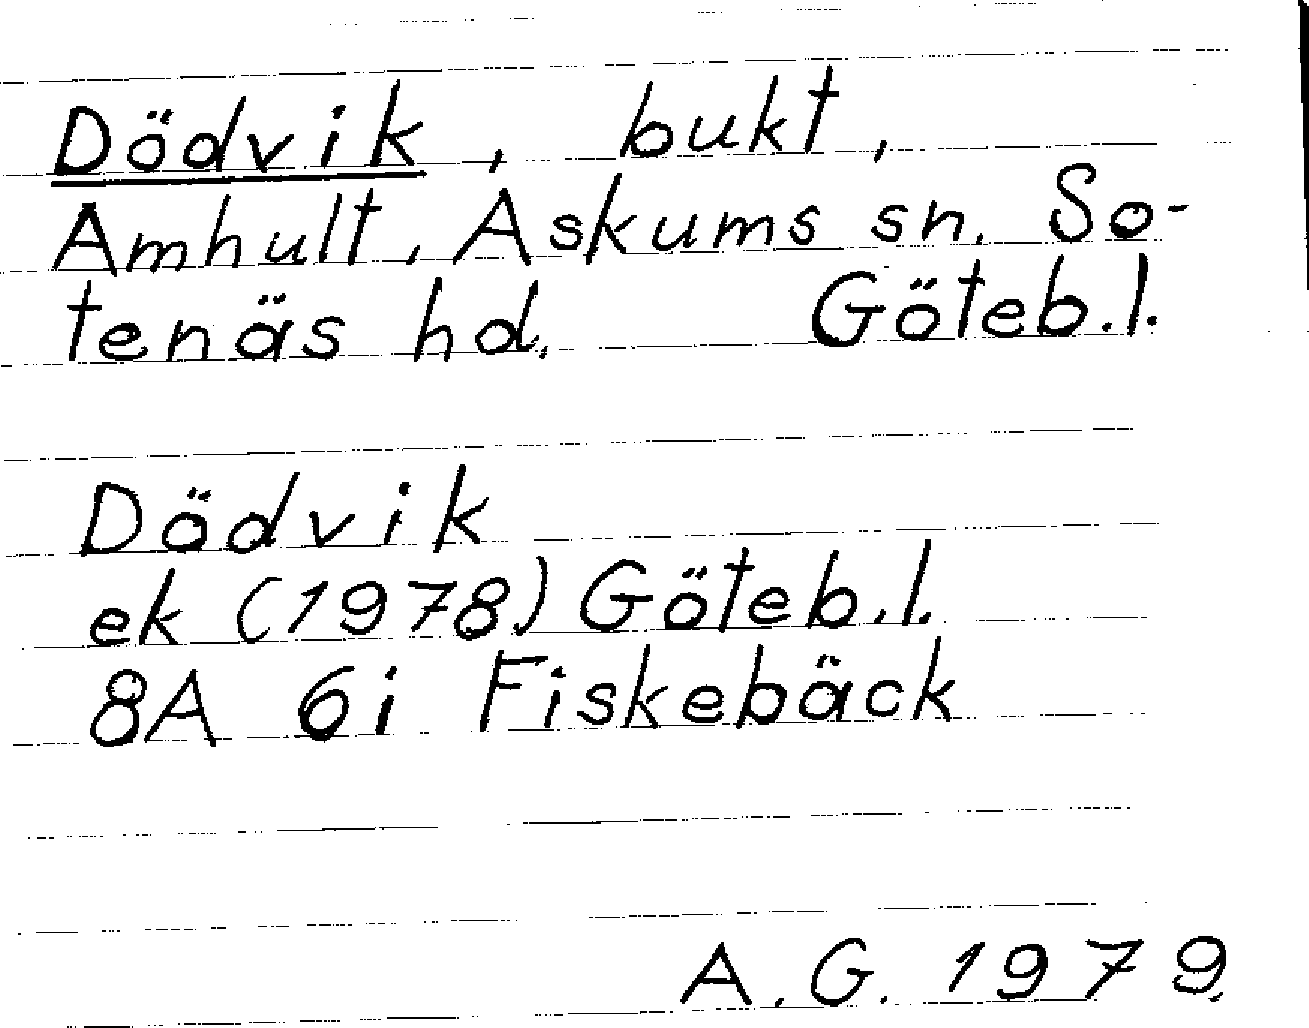 Dödvik, bukt,
Amhult, Askums sn. So-
tenäs hd. Göteb.l.
Dödvik
ek (1978) Göteb.l.
8A 6i Fiskebäck
A.G. 1979.